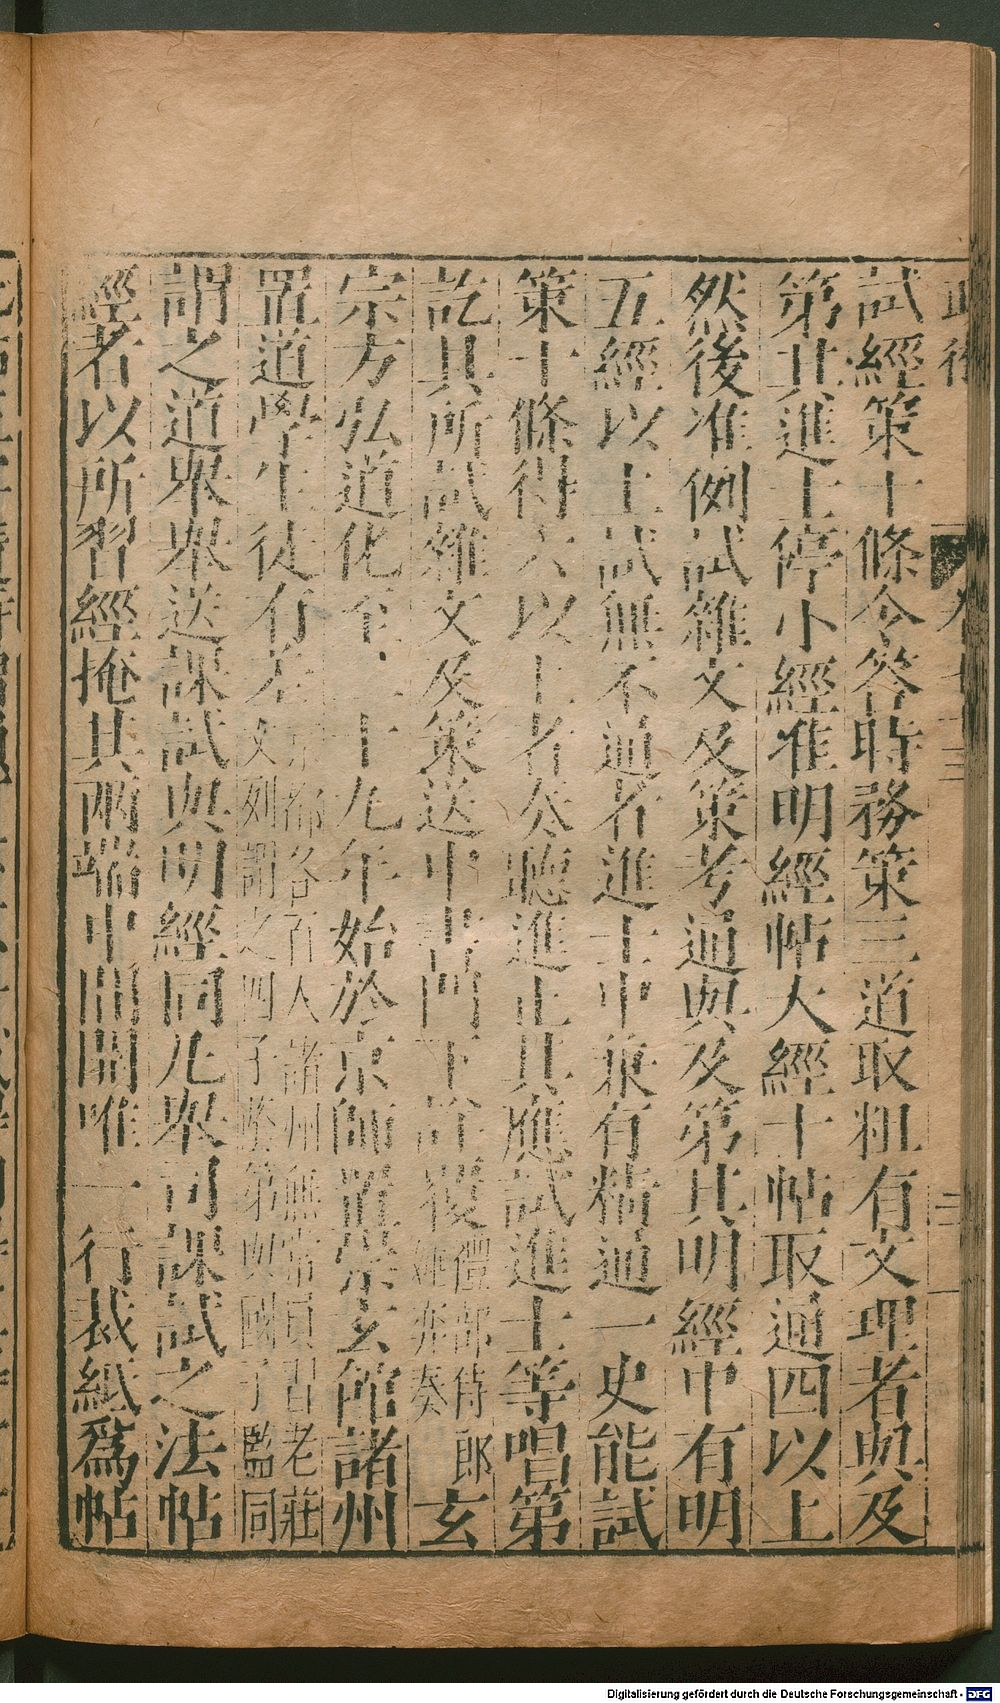 試經策十條令答時務策三道取粗有文理者與及
第其進士停小經准明經帖大經十帖取通四以上
然後准例試雜文及策考通與及第其明經中有明
五經以上試無不通者進士中兼有精通一史能試
策十條得六以上者奏聽進止其應試進士等唱第
訖其所試雜文及策送中書門下詳覆禮部侍郎姚奕奏玄
宗方弘道化至二十九年始於京師置崇玄館諸州
置道學生徒有差京都各百人諸州無常員習老莊文列謂之四子蔭第與國子監同
謂之道舉舉送課試與明經同凡舉司課試之法帖
經者以所習經掩其兩端中間開唯一行裁紙爲帖
Digitalisierung gefördert durch die Deutsche Forschungsgemeinschaft - DFG